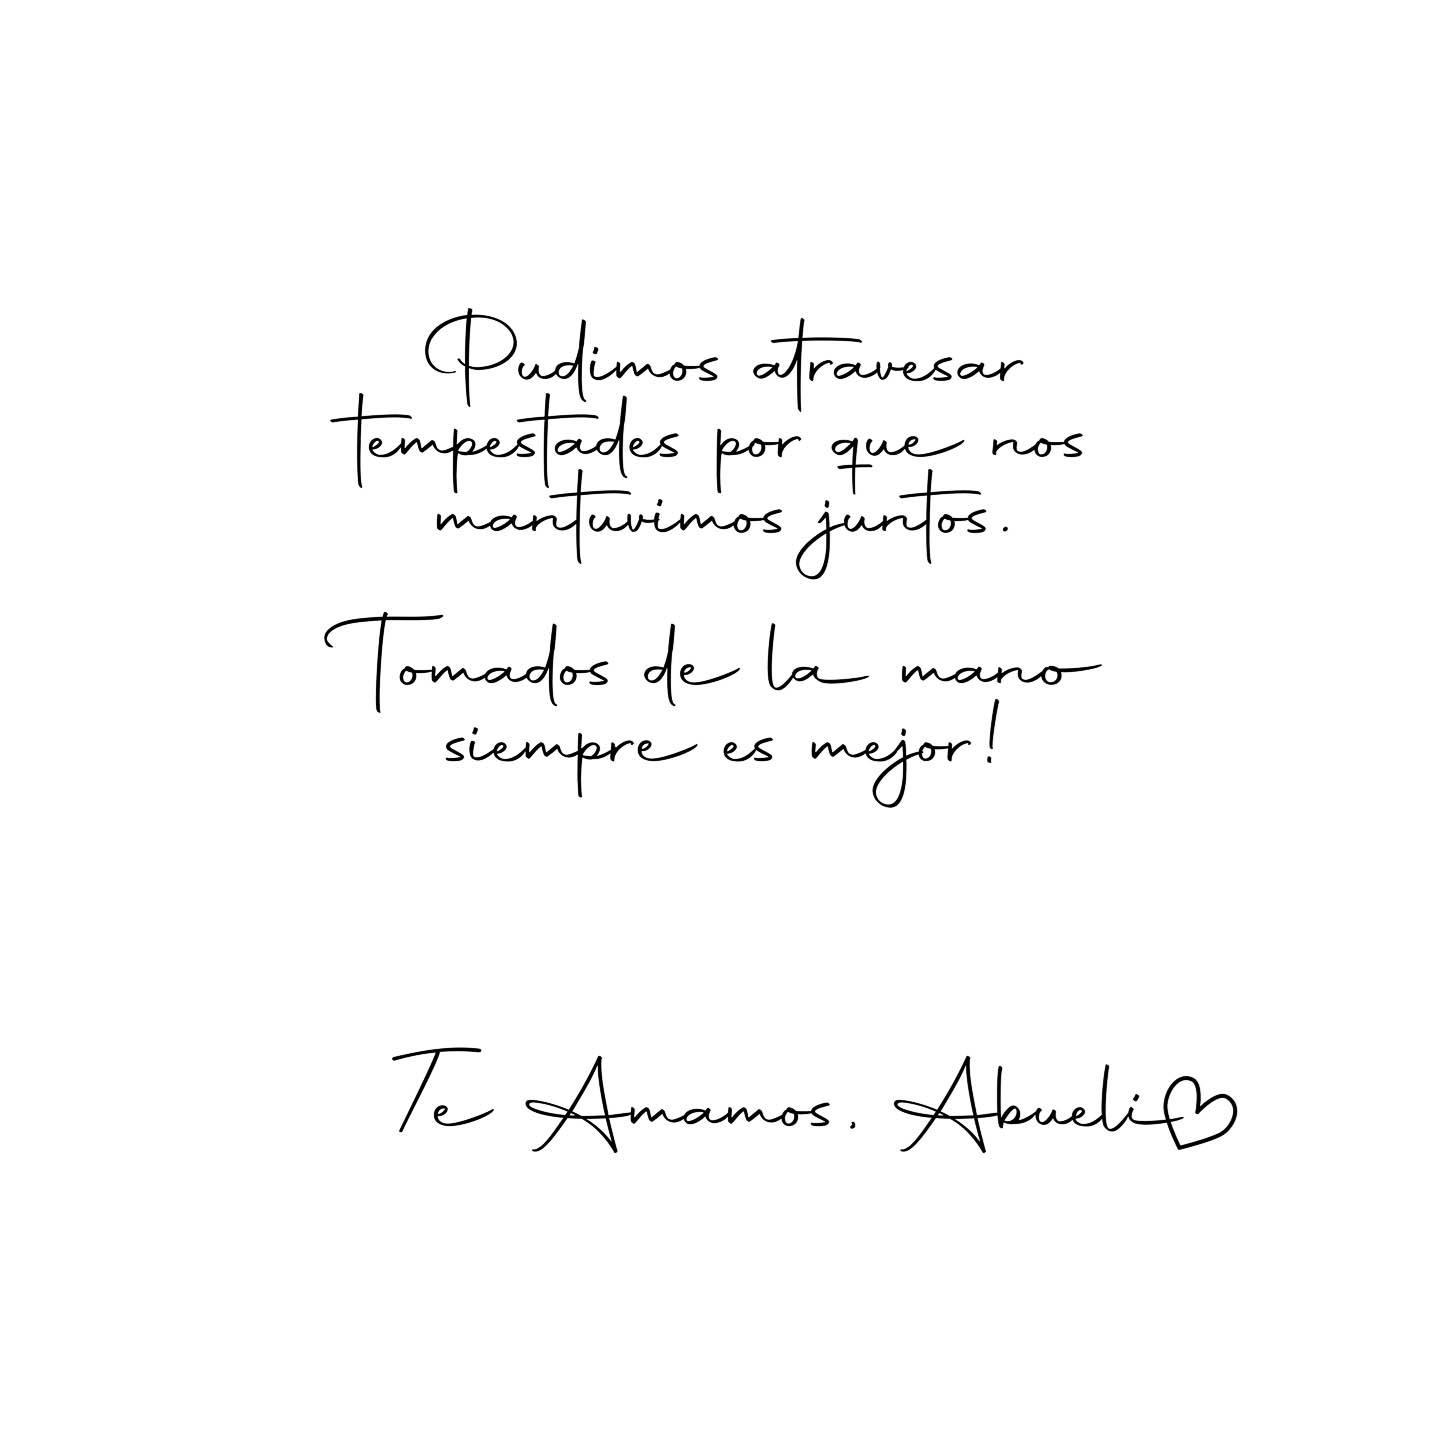 Pudimos atravesar
tempestades por que nos
mantuvimos juntos.
Tomados de la mano
siempre es mejor!
Te Amamos. Abueli